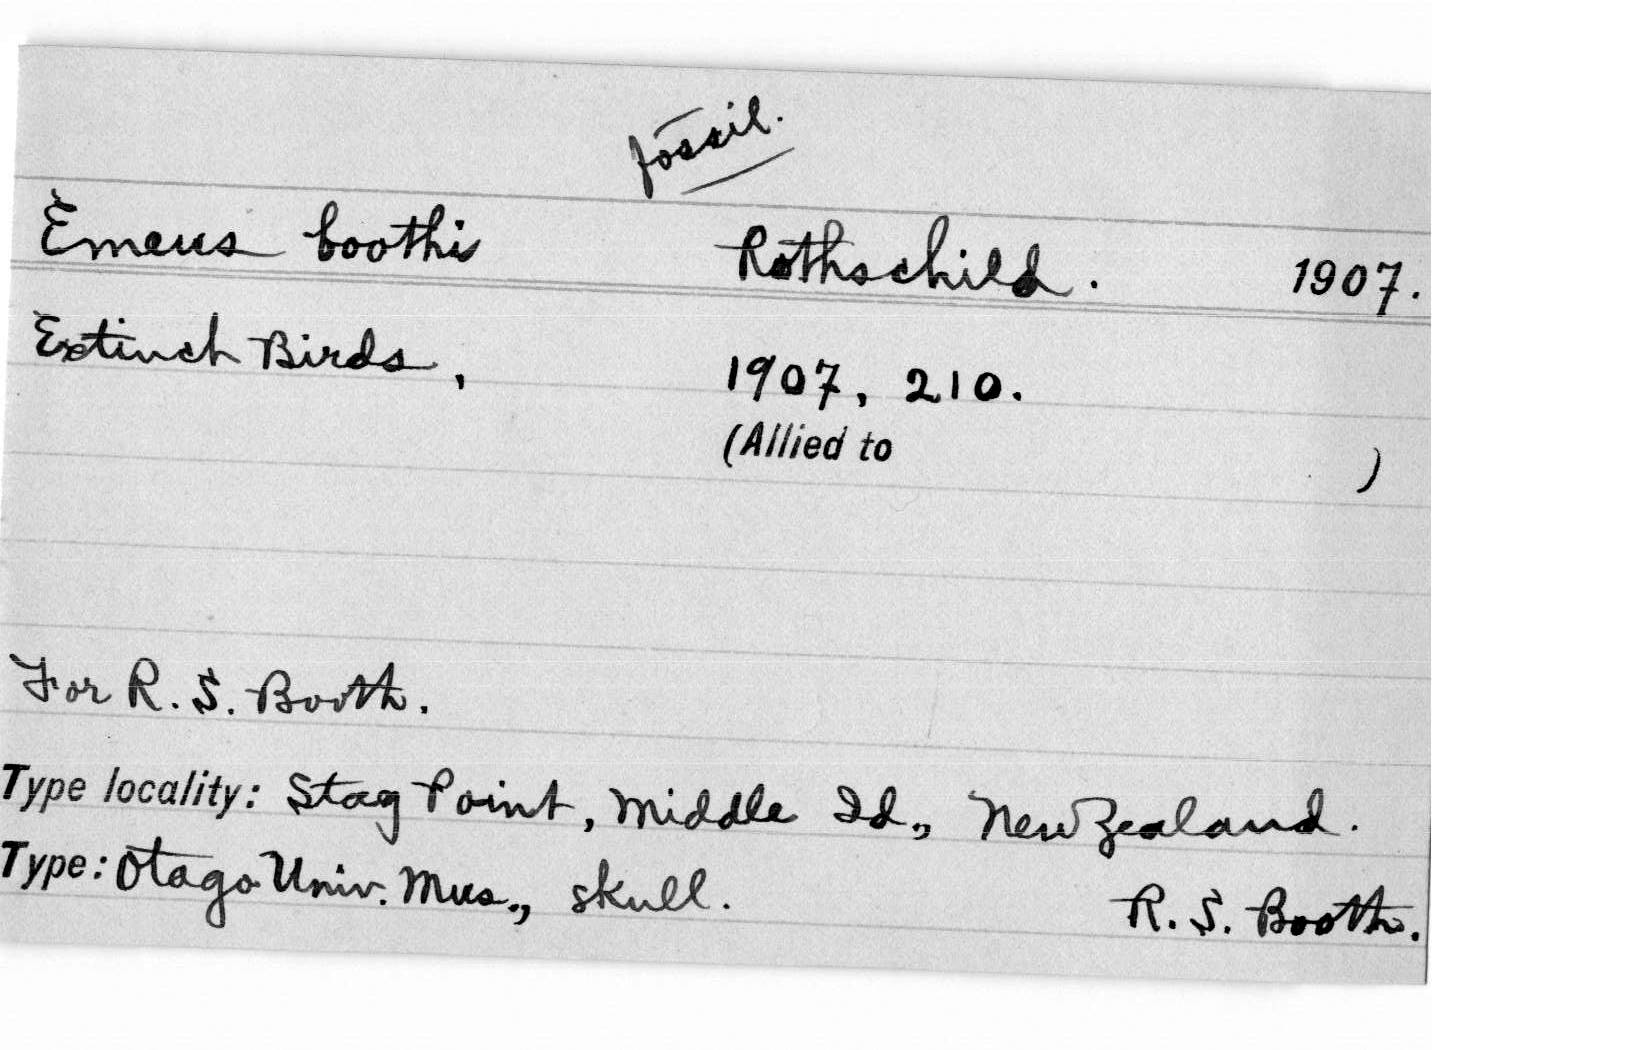 fossil.
Emeus boothi Rothschild. 1907.
Extinct Birds, 1907, 210.
(Allied to )
For R. S. Booth.
Type locality: Stag Point, Middle Id., New Zealand.
Type: Otago Univ. Mus., skull. R. S. Booth.